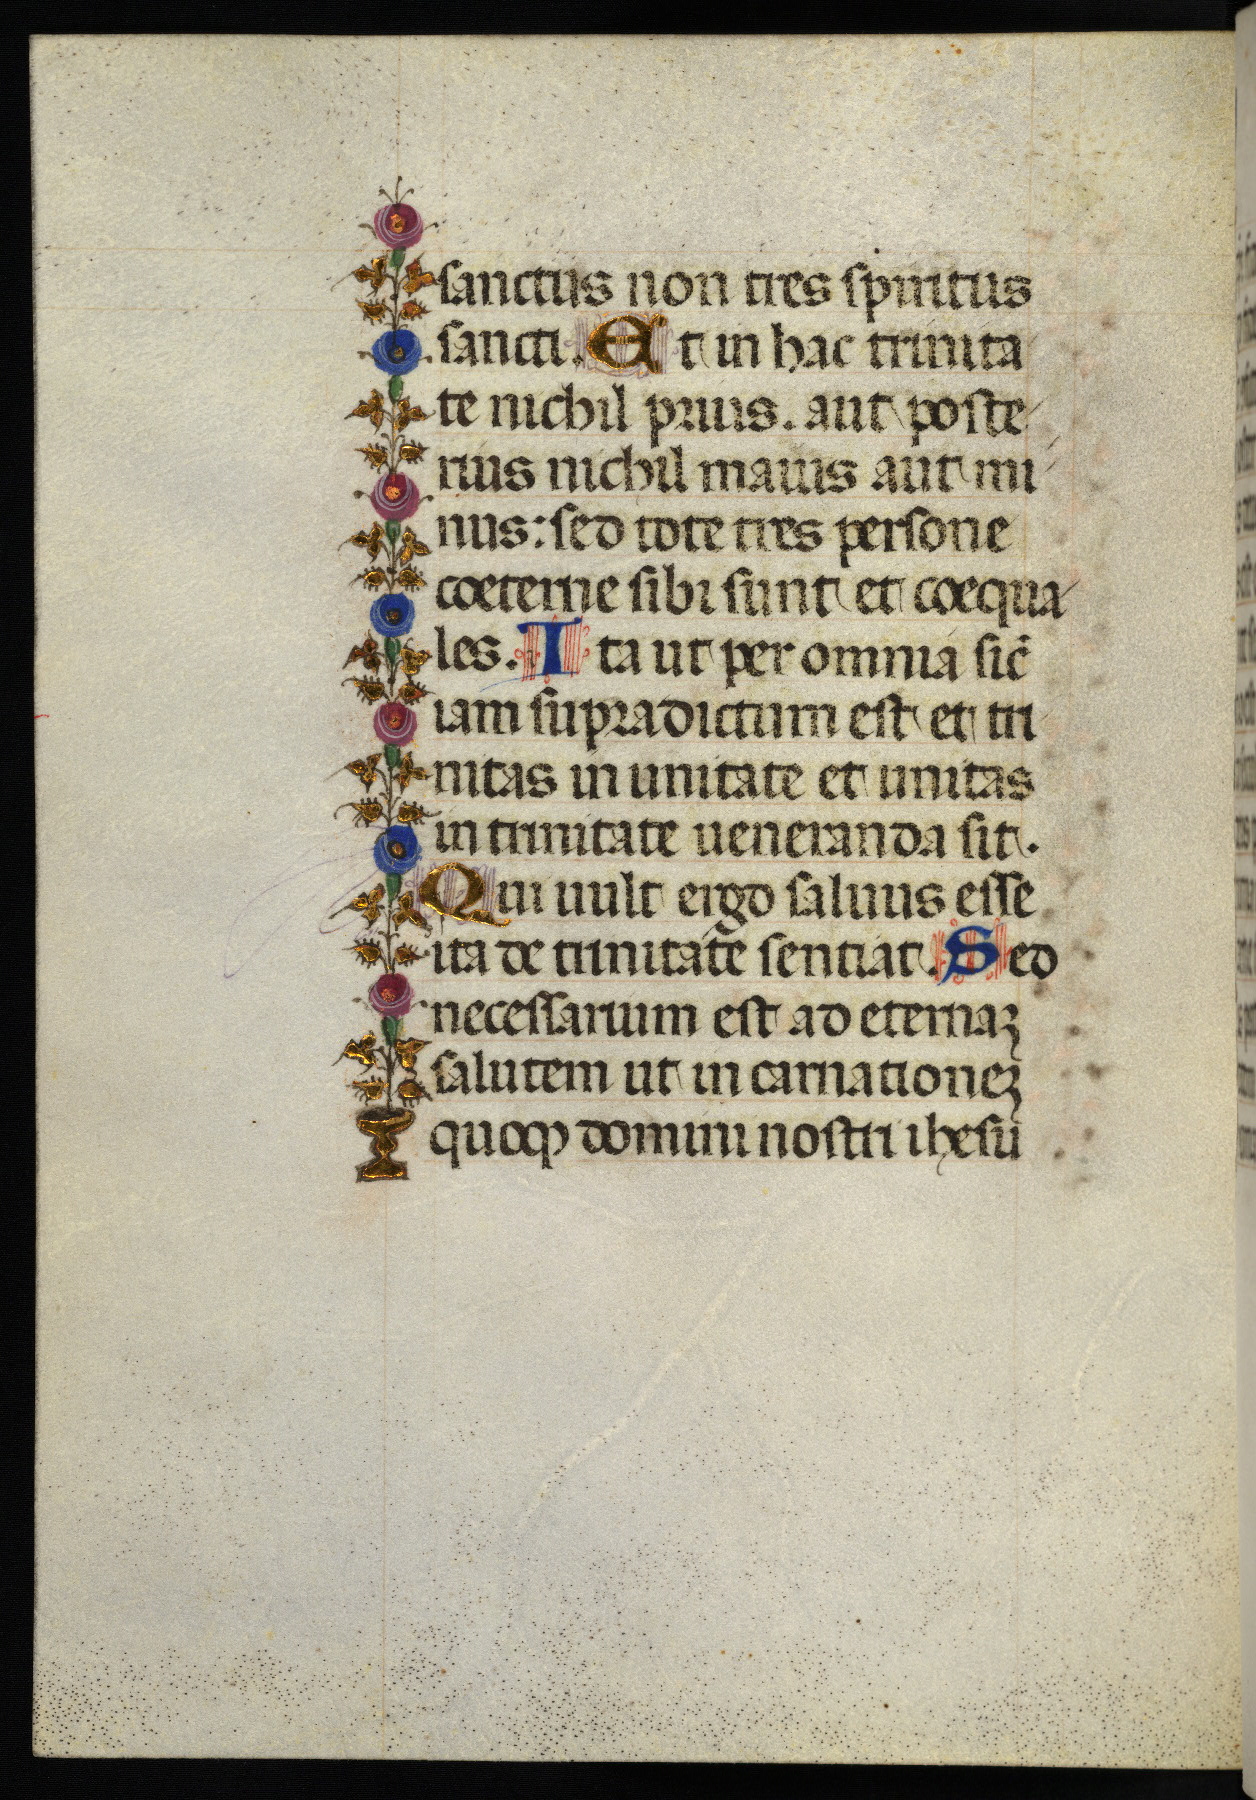 sanctus non tres spiritus
sancti. Et in hac trinita
te nichil prius. aut poste
rius nichil maius aut mi
nus: sed tote tres persone
coeterne sibi sunt et coequa
les. Ita ut per omnia sic̄
iam supradictum est et tri
nitas in unitate et unitas
in trinitate ueneranda sit.
Qui uult ergo saluus esse
ita de trinitate sentiat. Sed
necessarium est ad eternaꝫ
salutem ut in carnationeꝫ
quoqꝫ domini nostri ihesu